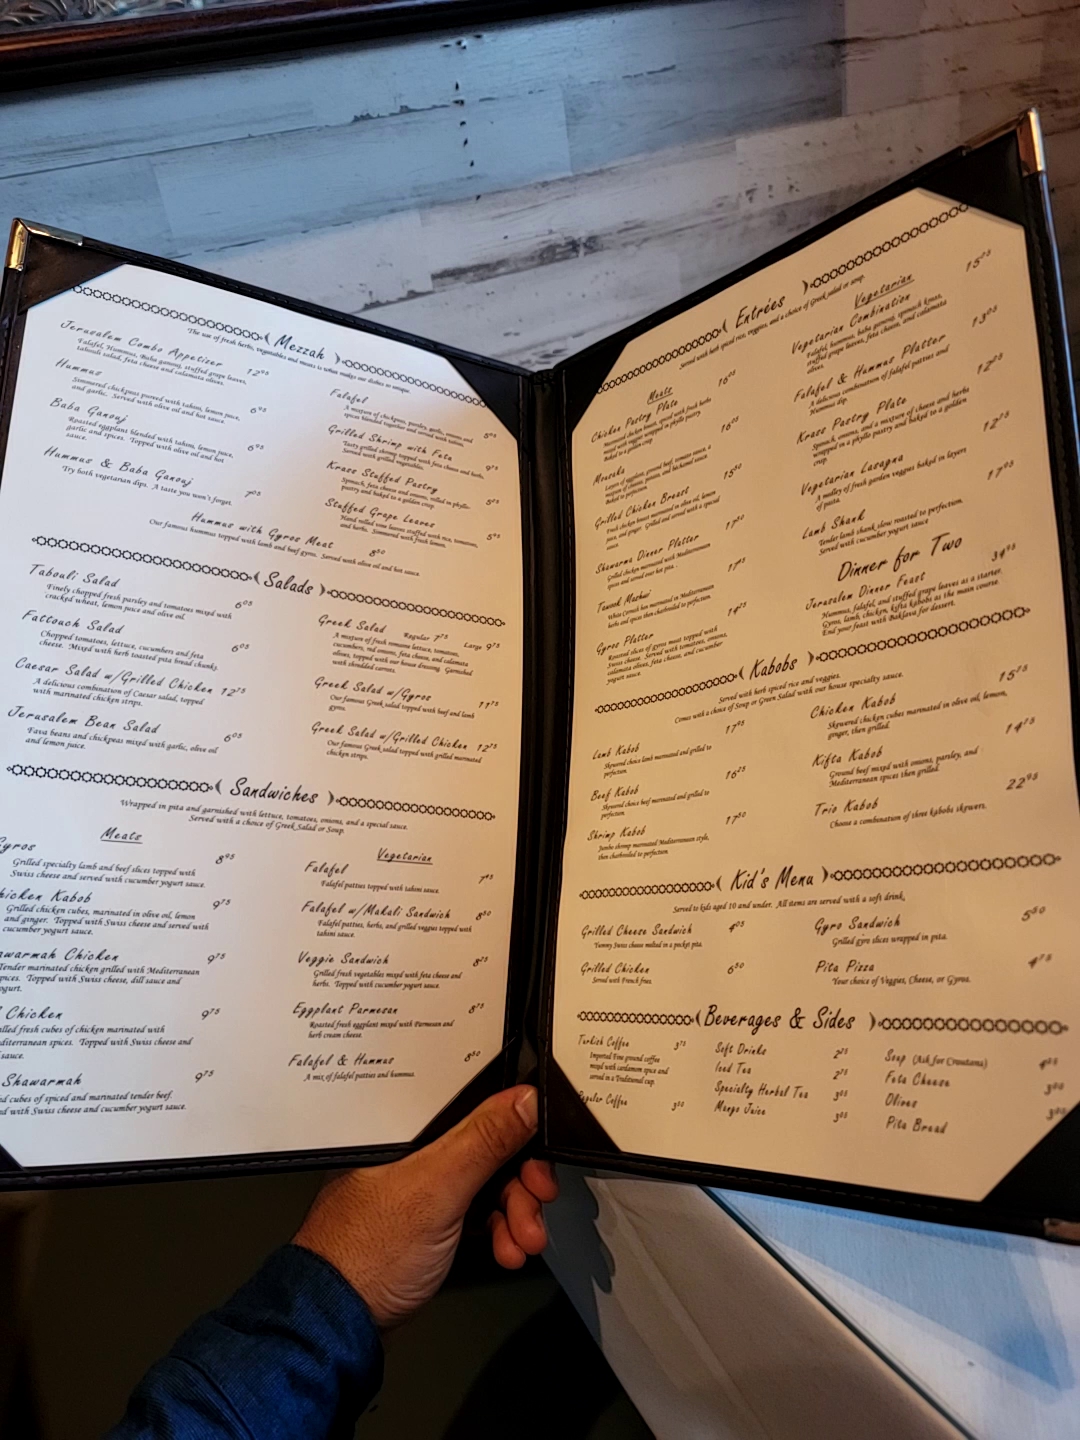 Mezzah
The use of fresh herbs, vegetables and meats is what makes our dishes so unique.
Jerusalem Combo Appetizer 12⁹⁵
Falafel, Hummus, Baba ganouj, stuffed grape leaves,
tabouli salad, feta cheese and calamata olives.
Hummus 6⁹⁵
Simmered chickpeas pureed with tahini, lemon juice,
and garlic. Served with olive oil and hot sauce.
Baba Ganouj 6⁹⁵
Roasted eggplant blended with tahini, lemon juice,
garlic and spices. Topped with olive oil and hot
sauce.
Hummus & Baba Ganouj 7⁹⁵
Try both vegetarian dips. A taste you won't forget.
Falafel
A mixture of chickpeas, parsley, garlic, onions and
spices blended together and served with tahini.
Grilled Shrimp with Feta
Tasty grilled shrimp topped with feta cheese and herbs,
Served with grilled vegetables.
Krass Stuffed Pastry
Spinach, feta cheese and onions, rolled in phyllo
pastry and baked to a golden crisp.
Stuffed Grape Leaves
Hand rolled vine leaves stuffed with rice, tomatoes,
and herbs. Simmered with fresh lemon.
Hummus with Gyros Meat 8⁵⁰
Our famous hummus topped with lamb and beef gyros. Served with olive oil and hot sauce.
Salads
Tabouli Salad 6⁰⁵
Finely chopped fresh parsley and tomatoes mixed with
cracked wheat, lemon juice and olive oil.
Fattoush Salad 6⁰⁵
Chopped tomatoes, lettuce, cucumbers and feta
cheese. Mixed with herb toasted pita bread chunks.
Caesar Salad w/Grilled Chicken 12⁷⁵
A delicious combination of Caesar salad, topped
with marinated chicken strips.
Jerusalem Bean Salad 6⁰⁵
Fava beans and chickpeas mixed with garlic, olive oil
and lemon juice.
Greek Salad Regular 7²⁵ Large 9⁷⁵
A mixture of fresh romaine lettuce, tomatoes,
cucumbers, red onions, feta cheese, and calamata
olives, topped with our house dressing. Garnished
with shredded carrots.
Greek Salad w/Gyros 11⁷⁵
Our famous Greek salad topped with beef and lamb
gyros.
Greek Salad w/Grilled Chicken 12⁷⁵
Our famous Greek salad topped with grilled marinated
chicken strips.
Sandwiches
Wrapped in pita and garnished with lettuce, tomatoes, onions, and a special sauce.
Served with a choice of Greek Salad or Soup.
Meats
yros 8⁹⁵
Grilled specialty lamb and beef slices topped with
Swiss cheese and served with cucumber yogurt sauce.
hicken Kabob 9⁷⁵
Grilled chicken cubes, marinated in olive oil, lemon
and ginger. Topped with Swiss cheese and served with
cucumber yogurt sauce.
awarmah Chicken 9⁷⁵
Tender marinated chicken grilled with Mediterranean
pices. Topped with Swiss cheese, dill sauce and
ogurt.
Chicken 9⁷⁵
lled fresh cubes of chicken marinated with
diterranean spices. Topped with Swiss cheese and
sauce.
Shawarmah 9⁷⁵
d cubes of spiced and marinated tender beef.
d with Swiss cheese and cucumber yogurt sauce.
Vegetarian
Falafel 7⁴⁵
Falafel patties topped with tahini sauce.
Falafel w/Makali Sandwich 8⁵⁰
Falafel patties, herbs, and grilled veggies topped with
tahini sauce.
Veggie Sandwich 8²⁵
Grilled fresh vegetables mixed with feta cheese and
herbs. Topped with cucumber yogurt sauce.
Eggplant Parmesan 8⁷⁵
Roasted fresh eggplant mixed with Parmesan and
herb cream cheese.
Falafel & Hummus 8⁵⁰
A mix of falafel patties and hummus.
Entrées
Served with herb spiced rice, veggies, and a choice of Greek salad or soup.
Meats
Chicken Pastry Plate 16⁰⁵
Marinated chicken breast, spiced with fresh herbs
mixed with veggies wrapped in phyllo pastry.
Baked to a golden crisp.
Mousaka 16⁰⁵
Layers of eggplant, ground beef, tomato sauce, a
mixture of cheeses, potato, and béchamel sauce.
Baked to perfection.
Grilled Chicken Breast 15⁵⁰
Fresh chicken breast marinated in olive oil, lemon
juice, and ginger. Grilled and served with a special
sauce.
Shawarma Dinner Platter 17⁵⁰
Grilled chicken marinated with Mediterranean
spices and served over hot pita.
Tawook Mashwi 17⁹⁵
White Cornish hen marinated in Mediterranean
herbs and spices then charbroiled to perfection.
Gyros Platter 14²⁵
Roasted slices of gyros meat topped with
Swiss cheese. Served with tomatoes, onions,
calamata olives, feta cheese, and cucumber
yogurt sauce.
Vegetarian
Vegetarian Combination 15⁹⁵
Falafel, hummus, baba ganouj, spinach krass,
stuffed grape leaves, feta cheese, and calamata
olives.
Falafel & Hummus Platter 13⁹⁵
A delicious combination of falafel patties and
Hummus dip.
Krass Pastry Plate 12⁹⁵
Spinach, onions, and a mixture of cheese and herbs
wrapped in a phyllo pastry and baked to a golden
crisp.
Vegetarian Lasagna 12⁹⁵
A medley of fresh garden veggies baked in layers
of pasta.
Lamb Shank 17⁹⁵
Tender lamb shank slow roasted to perfection.
Served with cucumber yogurt sauce
Dinner for Two
Jerusalem Dinner Feast 34⁹⁵
Hummus, falafel, and stuffed grape leaves as a starter.
Gyros, lamb, chicken, kifta kabobs as the main course.
End your feast with Baklava for dessert.
Kabobs
Served with herb spiced rice and veggies.
Comes with a choice of Soup or Green Salad with our house specialty sauce.
Lamb Kabob 17⁹⁵
Skewered choice lamb marinated and grilled to
perfection.
Beef Kabob 16²⁵
Skewered choice beef marinated and grilled to
perfection.
Shrimp Kabob 17⁵⁰
Jumbo shrimp marinated Mediterranean style,
then charbroiled to perfection.
Chicken Kabob 15²⁵
Skewered chicken cubes marinated in olive oil, lemon,
ginger, then grilled.
Kifta Kabob 14⁷⁵
Ground beef mixed with onions, parsley, and
Mediterranean spices then grilled.
Trio Kabob 22⁹⁵
Choose a combination of three kabobs skewers.
Kid's Menu
Served to kids aged 10 and under. All items are served with a soft drink.
Grilled Cheese Sandwich 4⁹⁵
Yummy Swiss cheese melted in a pocket pita.
Grilled Chicken 6⁵⁰
Served with French fries.
Gyro Sandwich 5⁵⁰
Grilled gyro slices wrapped in pita.
Pita Pizza 4⁷⁵
Your choice of Veggies, Cheese, or Gyros.
Beverages & Sides
Turkish Coffee 3⁷⁵
Imported fine ground coffee
mixed with cardamom spice and
served in a Traditional cup.
egular Coffee 3⁰⁰
Soft Drinks 2²⁵
Iced Tea 2⁷⁵
Specialty Herbal Tea 3⁰⁰
Mango Juice 3⁰⁵
Soup (Ask for Croutons)
Feta Cheese
Olives
Pita Bread